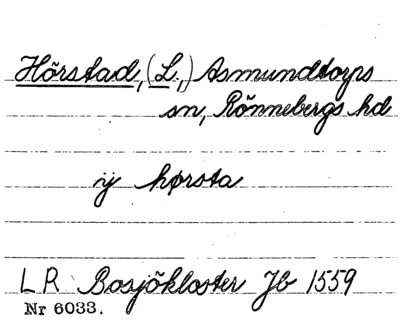 Hörstad, (L.,) Asmundtorps
sn, Rönnebergs hd
ij hørsta
LR Bosjökloster Jb 1559
Nr 6033.